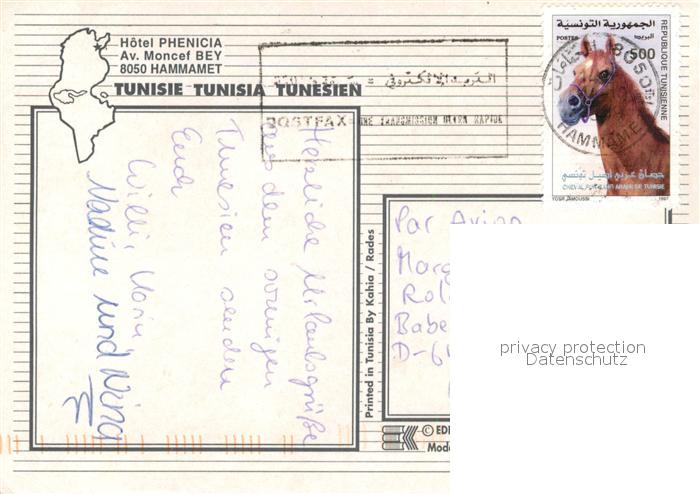 Hôtel PHENICIA
Av. Moncef BEY
8050 HAMMAMET
TUNISIE TUNISIA TUNESIEN
البريد الإلكتروني =
POSTFAX = UNE TRANSMISSION ULTRA RAPIDE
الجمهورية التونسية
البريد
POSTES
500
REPUBLIQUE TUNISIENNE
8050
HAMMAMET
حصان عربي أصيل تونسي
CHEVAL PUR-SANG ARABE DE TUNISIE
YOSR JAMOUSSI
1997
Herzliche Urlaubsgrüße
aus dem sonnigen
Tunesien senden
Euch
Willi,
Nadine und Nina
Par Avion
Printed in Tunisia By Kahia / Rades
© EDI
privacy protection
Datenschutz